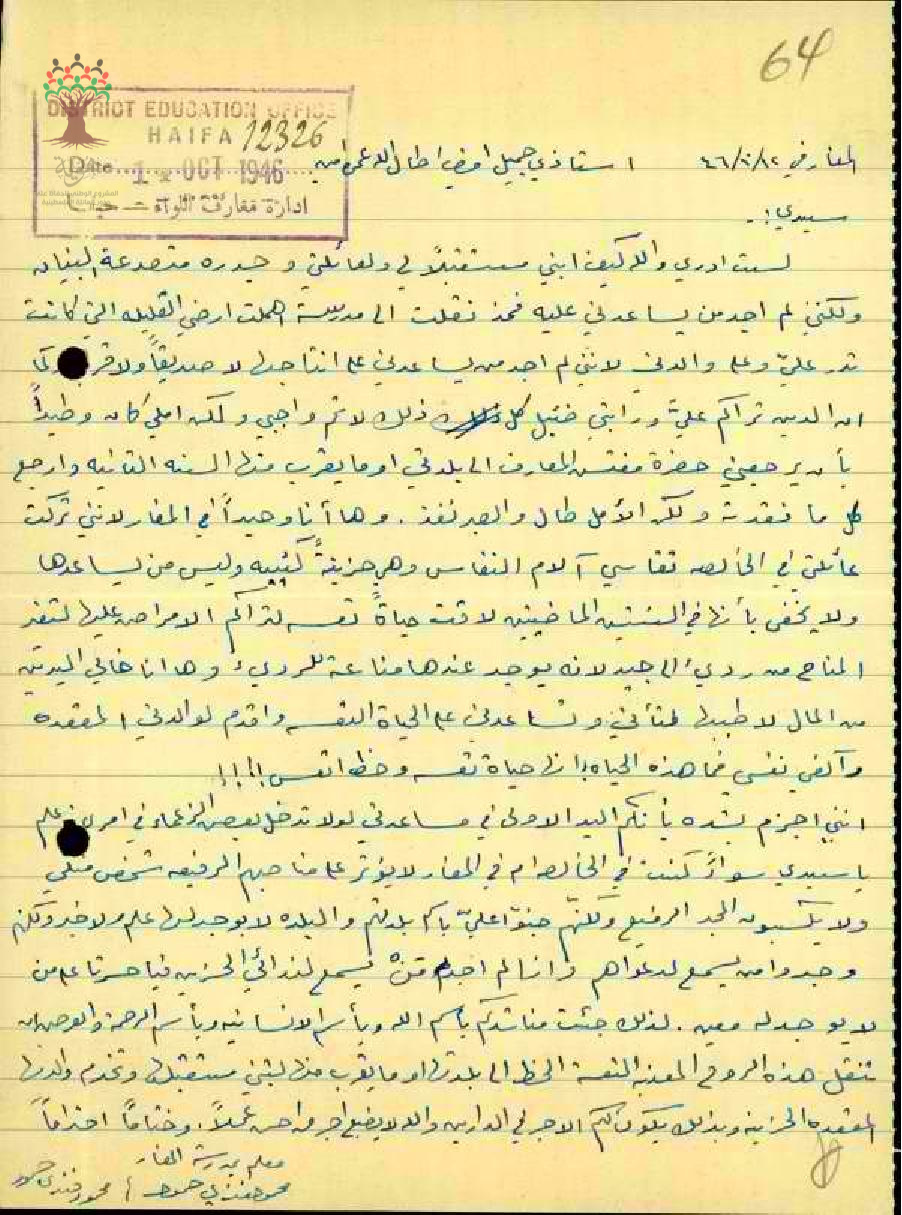 64
DISTRICT EDUCATION OFFICE
HAIFA 12326
Date 1 OCT 1946
ادارة معارف اللواء - حيفا
المغار في استاذي جميل افندي اطال الله عمره امين
سيدي! -
لست ادري والله كيف ابني مستقبلاً لي ولعائلتي وجدره متصدعة البنيان
ولكنني لم اجد من يساعدني عليه فمنذ نقلت الى مدرسة اهملت ارضي القليله التي كانت
تدر عليّ وعلى والدتي لانني لم اجد من يساعدني على انتاجها لا صديقاً ولا كما
ان الدين تراكم عليّ وراتبي ضئيل كل ذلك لاتم واجبي ولكن املي كان وطيداً
بأن يرجعني حضرة مفتش المعارف الى بلدتي او ما يقرب منها السنه الثانيه وارجع
كل ما فقدته ولكن الأمل طال والصبر نفذ. وها أنا وحيداً في المغار لانني تركت
عائلتي في الخالصه تقاسي آلام النفاس وهي حزينةً كئيبه وليس من يساعدها
ولا يخفى بأنها في السنتين الماضيتين لاقت حياةً تعسه لتراكم الامراض عليها لتغير
المناخ من رديء الى جيد لانه يوجد عندها مناعة للرديء وها انا خالي اليدين
من المال لاطببها لتساعدني على الحياة التعسه واقدم لوالدتي المقعده
وآلفي نفسي فما هذه الحياه! انها حياة تعسه وحظ اتعس!!!!
انني اجزم بشده بأنكم اليد الاولى في مساعدتي لولا تدخل بعض الزعماء في امري علم
يا سيدي سواءً كنت في الخالصه ام في المغار لا يؤثر على مناصبهم الرفيعه شخص مثلي
ولا يكسبون المجد الرفيع ولكنهم جنوا عليّ بلدتهم والبلده لا يوجد لها علم ولا خبر ولكنهم
وجدوا من يسمع لدعواهم وانا لم اجد من يسمع لندائي الحزين فيا حسرتا على من
لا يوجد له معين. لذلك جئت مناشدكم بأسم الله وبأسم الانسانيه وبأسم الرحمة والعرض ان
تنقل هذه الروح المعذبه التعسة الحظ الى بلدتها او ما يقرب منها لتبني مستقبلها وتخدم والدتها
المقعده الحزينه وبذلك يكون لكم الاجر في الدارين والله لا يضيع اجر من احسن عملاً. وختاماً احتراماً
معلم مدرسة المغار